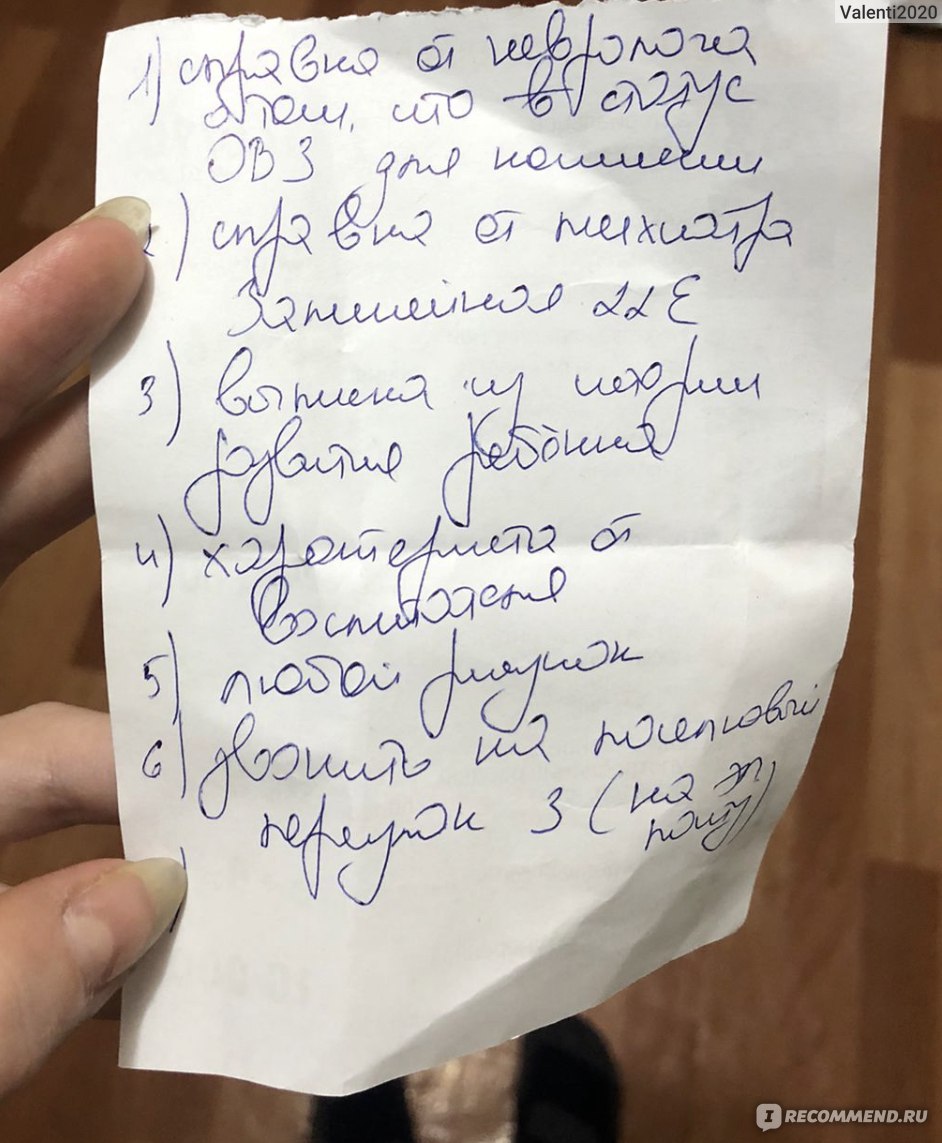 Valenti2020
1) справка от невролога
о том, что в статус
ОВЗ для комиссии
2) справка от психиатра
Запшейная 22Е
3) выписка из истории
развития ребёнка
4) характериста от
воспитателя
5) любой рисунок
6) звонить на
переулок 3 (на эл.
почту)
I RECOMMEND.RU